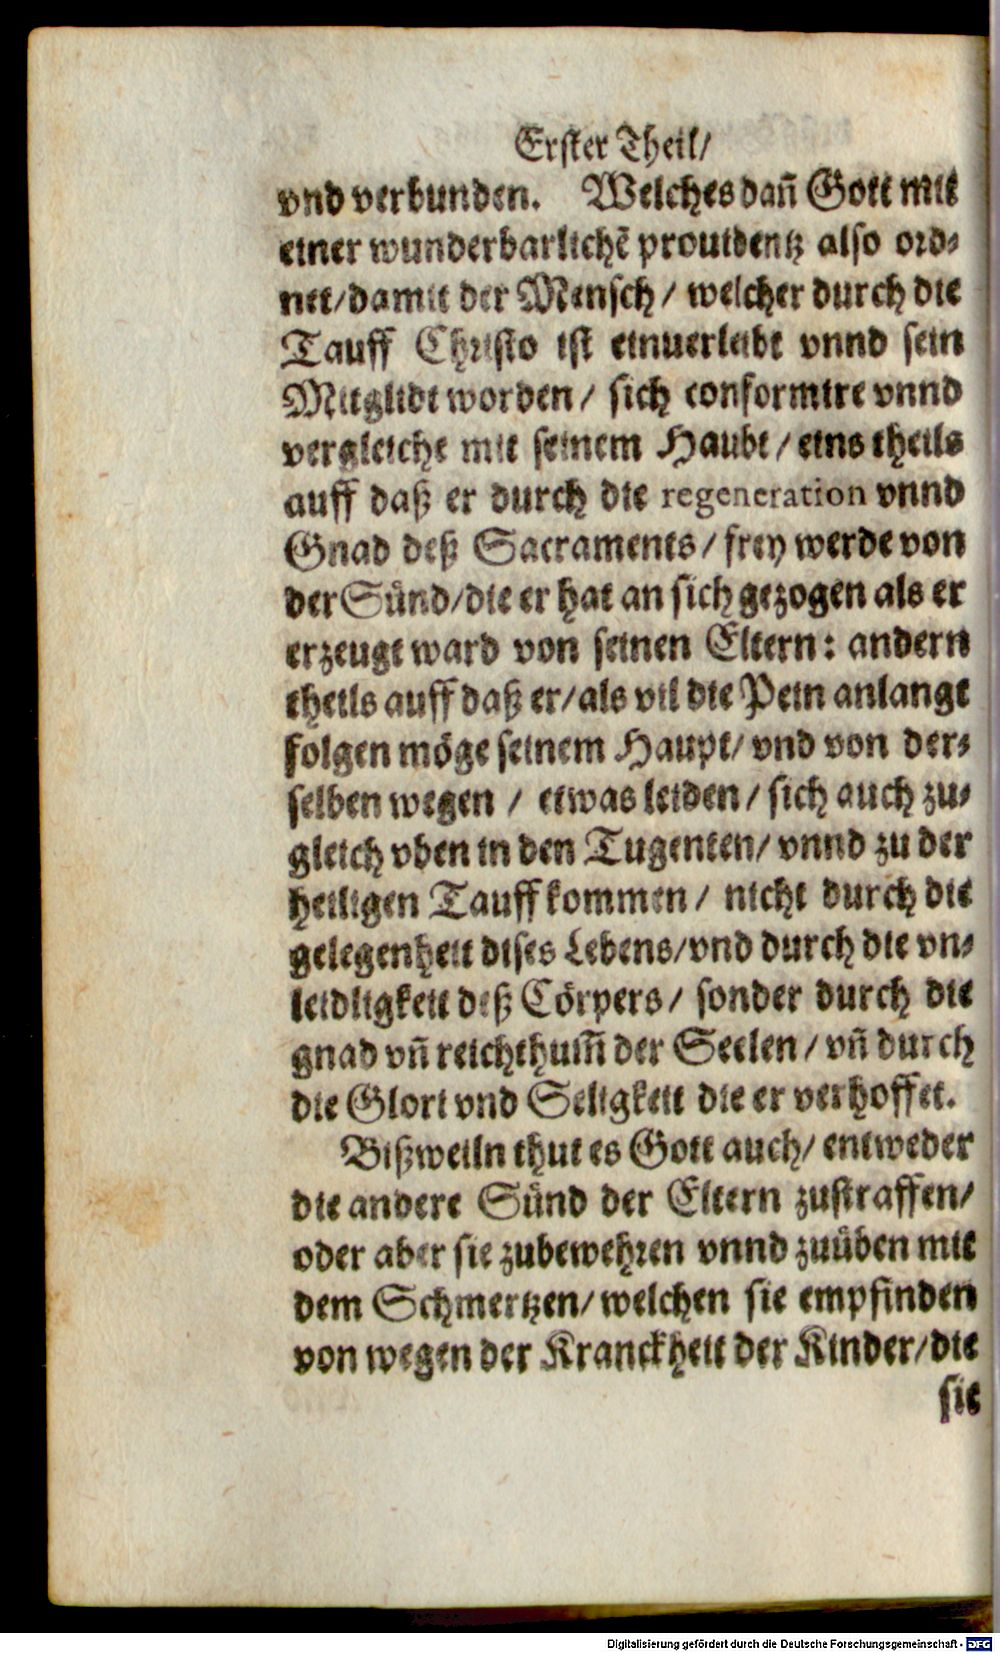 Erster Theil/
vnd verbunden. Welches dañ Gott mit
einer wunderbarlichē prouidentz also ord-
net/damit der Mensch/ welcher durch die
Tauff Christo ist einuerleibt vnnd sein
Mitglidt worden/ sich conformire vnnd
vergleiche mit seinem Haubt/eins theils
auff daß er durch die regeneration vnnd
Gnad deß Sacraments/frey werde von
der Sünd/die er hat an sich gezogen als er
erzeugt ward von seinen Eltern: andern
theils auff daß er/als vil die Pein anlangt
folgen möge seinem Haupt/vnd von der-
selben wegen / etwas leiden/sich auch zu-
gleich vben in den Tugenten/vnnd zu der
heiligen Tauff kommen/ nicht durch die
gelegenheit dises Lebens/vnd durch die vn-
leidligkeit deß Cörpers/ sonder durch die
gnad vñ reichthum̃ der Seelen/vñ durch
die Glori vnd Seligkeit die er verhoffet.
Bißweiln thut es Gott auch/entweder
die andere Sünd der Eltern zustraffen/
oder aber sie zubewehren vnnd zuüben mit
dem Schmertzen/welchen sie empfinden
von wegen der Kranckheit der Kinder/die
sie
Digitalisierung gefördert durch die Deutsche Forschungsgemeinschaft - DFG